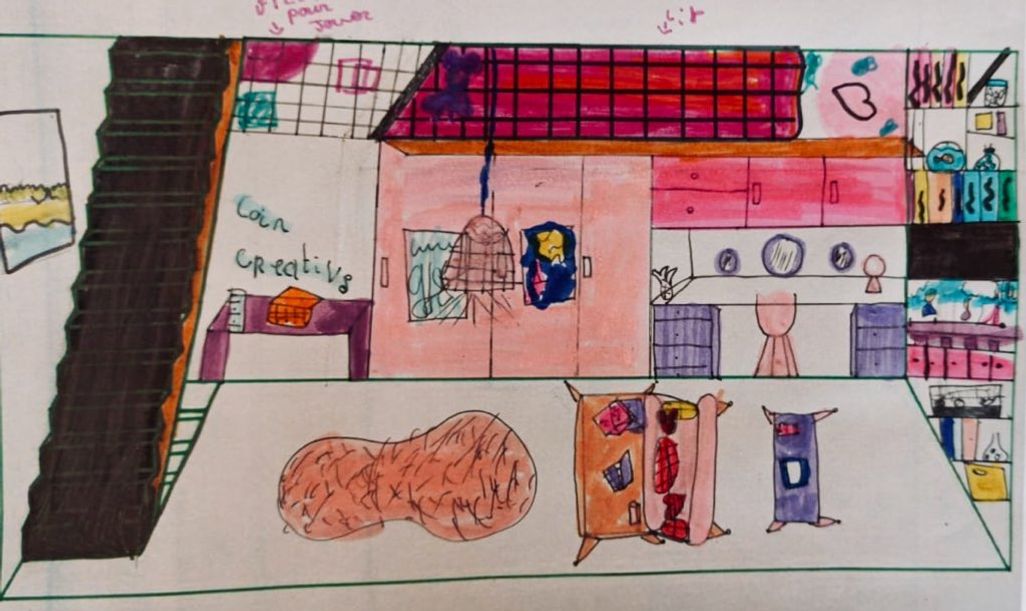 pour
jouer
Lit
Coin
Creative